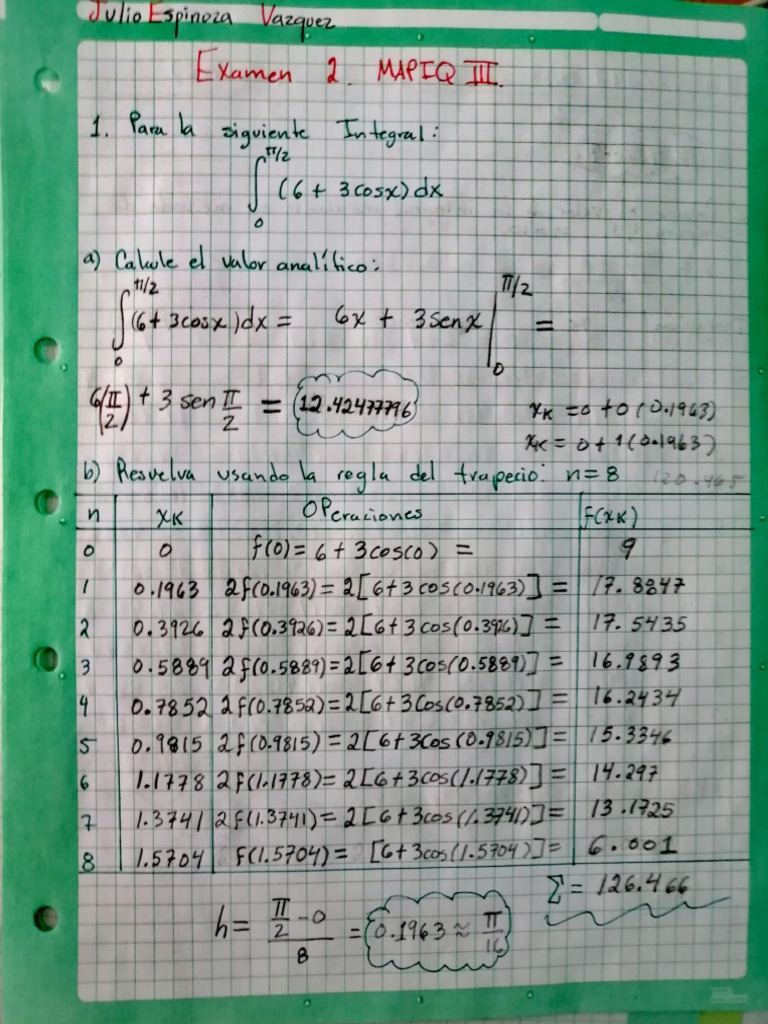 Julio Espinoza Vazquez
Examen 2. MAPIQ III.
1. Para la siguiente Integral:
∫₀^π/2 (6 + 3cosx) dx
a) Calcule el valor analítico:
∫₀^π/2 (6 + 3cosx) dx = 6x + 3senx |₀^π/2 =
6(π/2) + 3 sen π/2 = 12.42477796
xK = 0 + 0(0.1963)
xK = 0 + 1(0.1963)
b) Resuelva usando la regla del trapecio: n = 8
n xK Operaciones f(xK)
0 0 f(0) = 6 + 3cos(0) = 9
1 0.1963 2f(0.1963) = 2[6+3cos(0.1963)] = 17.8847
2 0.3926 2f(0.3926) = 2[6+3cos(0.3926)] = 17.5435
3 0.5889 2f(0.5889) = 2[6+3cos(0.5889)] = 16.9893
4 0.7852 2f(0.7852) = 2[6+3Cos(0.7852)] = 16.2434
5 0.9815 2f(0.9815) = 2[6+3Cos(0.9815)] = 15.3346
6 1.1778 2f(1.1778) = 2[6+3cos(1.1778)] = 14.297
7 1.3741 2f(1.3741) = 2[6+3cos(1.3741)] = 13.1725
8 1.5704 f(1.5704) = [6+3cos(1.5704)] = 6.001
Σ = 126.466
h = (π/2 - 0)/8 = 0.1963 ≈ π/16